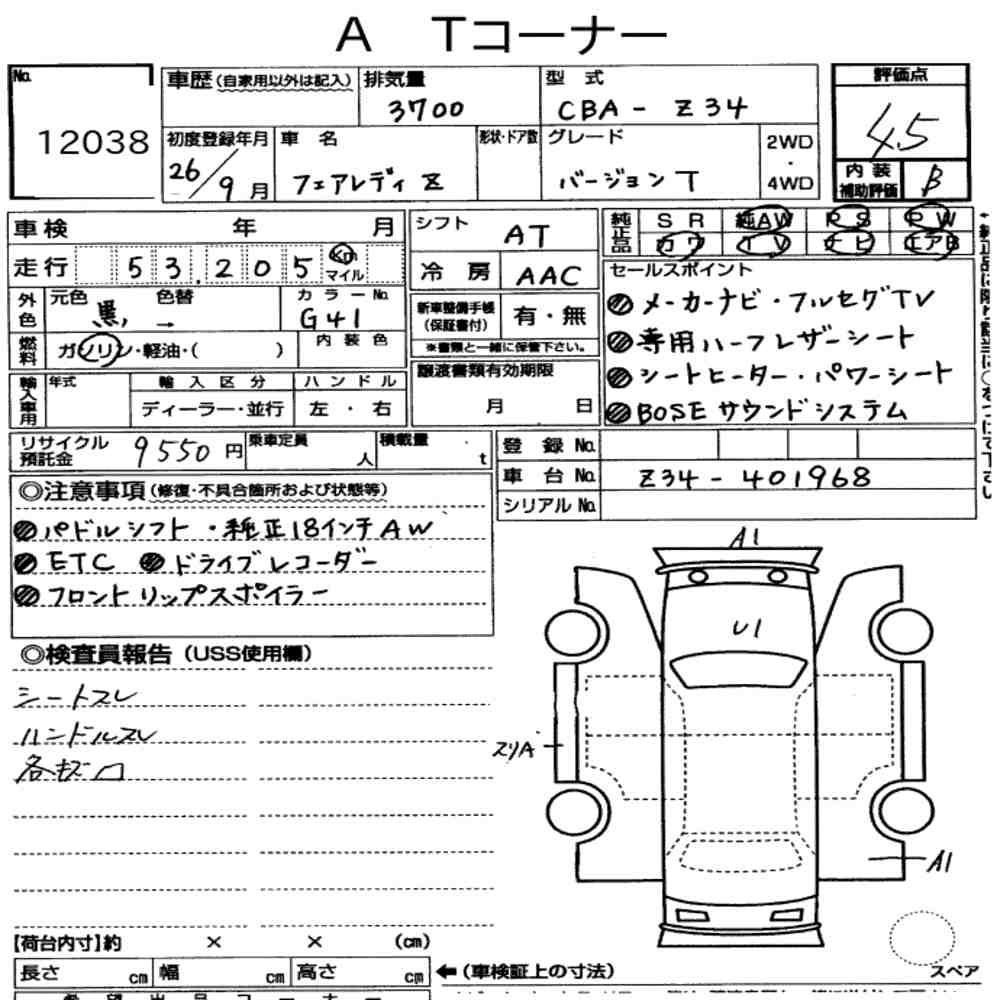 A Tコーナー
No.
12038
車歴(自家用以外は記入)
排気量
3700
型式
CBA-Z34
評価点
4.5
初度登録年月
26/9月
車名
フェアレディZ
形状・ドア数
グレード
バージョンT
2WD
・
4WD
内装
補助評価
B
車検 年 月
走行
53,205
Km
マイル
シフト
AT
冷房
AAC
純正品
SR 純AW PS PW
カワ TV ナビ エアB
外色
元色
黒
色替
→
カラーNo.
G41
燃料
ガソリン・軽油・( )
内装色
新車整備手帳
(保証書付)
有・無
※書類と一緒に保管下さい。
セールスポイント
メーカーナビ・フルセグTV
専用ハーフレザーシート
シートヒーター・パワーシート
BOSEサウンドシステム
輸入車用
年式
輸入区分
ディーラー・並行
ハンドル
左・右
譲渡書類有効期限
月 日
リサイクル
預託金
9550円
乗車定員
人
積載量
t
登録No.
車台No.
Z34-401968
シリアルNo.
◎注意事項(修復・不具合箇所および状態等)
パドルシフト・純正18インチAW
ETC ドライブレコーダー
フロントリップスポイラー
◎検査員報告(USS使用欄)
シートスレ
ハンドルスレ
各キズ凹
A1
U1
スリA
A1
スペア
【荷台内寸】約 × × (cm)
長さ cm 幅 cm 高さ cm
←(車検証上の寸法)